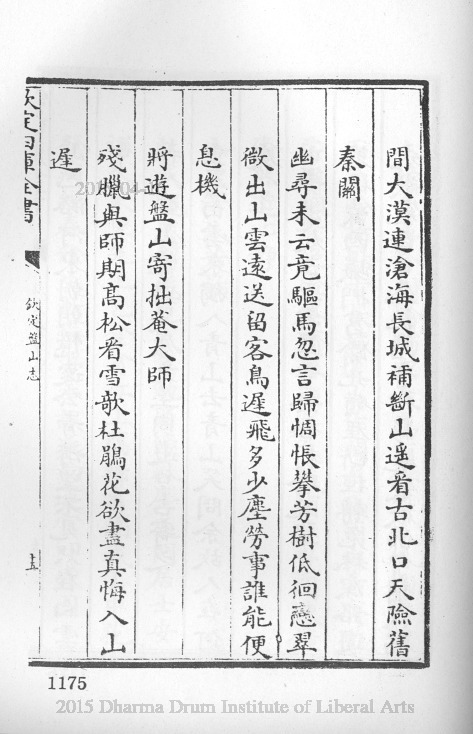 間大漠連滄海長城補斷山遥看古北口天險舊
秦關
幽尋未云竟驅馬忽言歸惆悵攀芳樹低徊戀翠
微出山雲遠送留客鳥遲飛多少塵勞事誰能便
息機
將遊盤山寄拙菴大師
殘臘與師期髙松看雪欹杜鵑花欲盡真悔入山
遲
欽定四庫全書
欽定盤山志
十五
1175
2015 Dharma Drum Institute of Liberal Arts